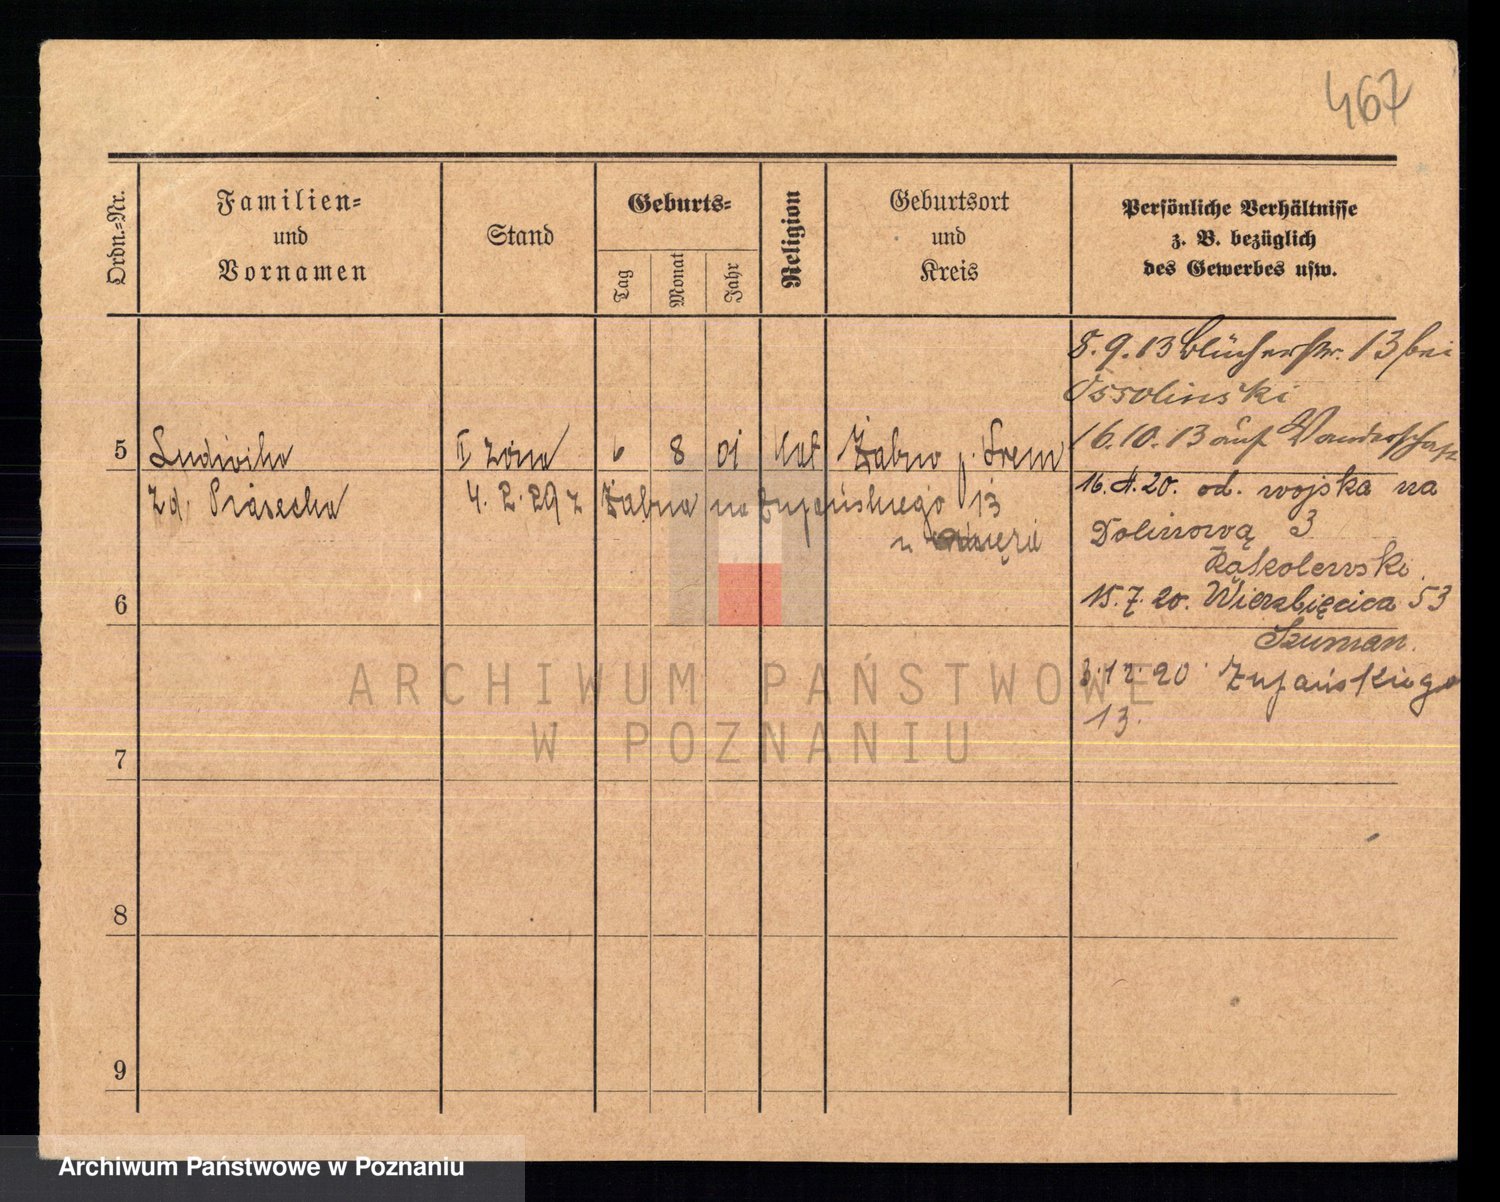 467
Ordn.-Nr.
Familien-
und
Vornamen
Stand
Geburts-
Tag
Monat
Jahr
Religion
Geburtsort
und
Kreis
Persönliche Verhältnisse
z. B. bezüglich
des Gewerbes usw.
8.9.13 Blücherstr. 13 bei
Ossolinski
16.10.13 auf Wanderschaft
5 Ludwika II żona 6 8 01 kat Żabno p. Śrem
4. 2. 29 z Żabna na Żupańskiego 13
u
16.4.20. od. wojska na
Dolinową 3
Kąkolewski
6
15.7.20. Wierzbięcica 53
Szuman.
3.12.20 Żupańskiego
13.
7
8
9
ARCHIWUM PAŃSTWOWE
W POZNANIU
Archiwum Państwowe w Poznaniu